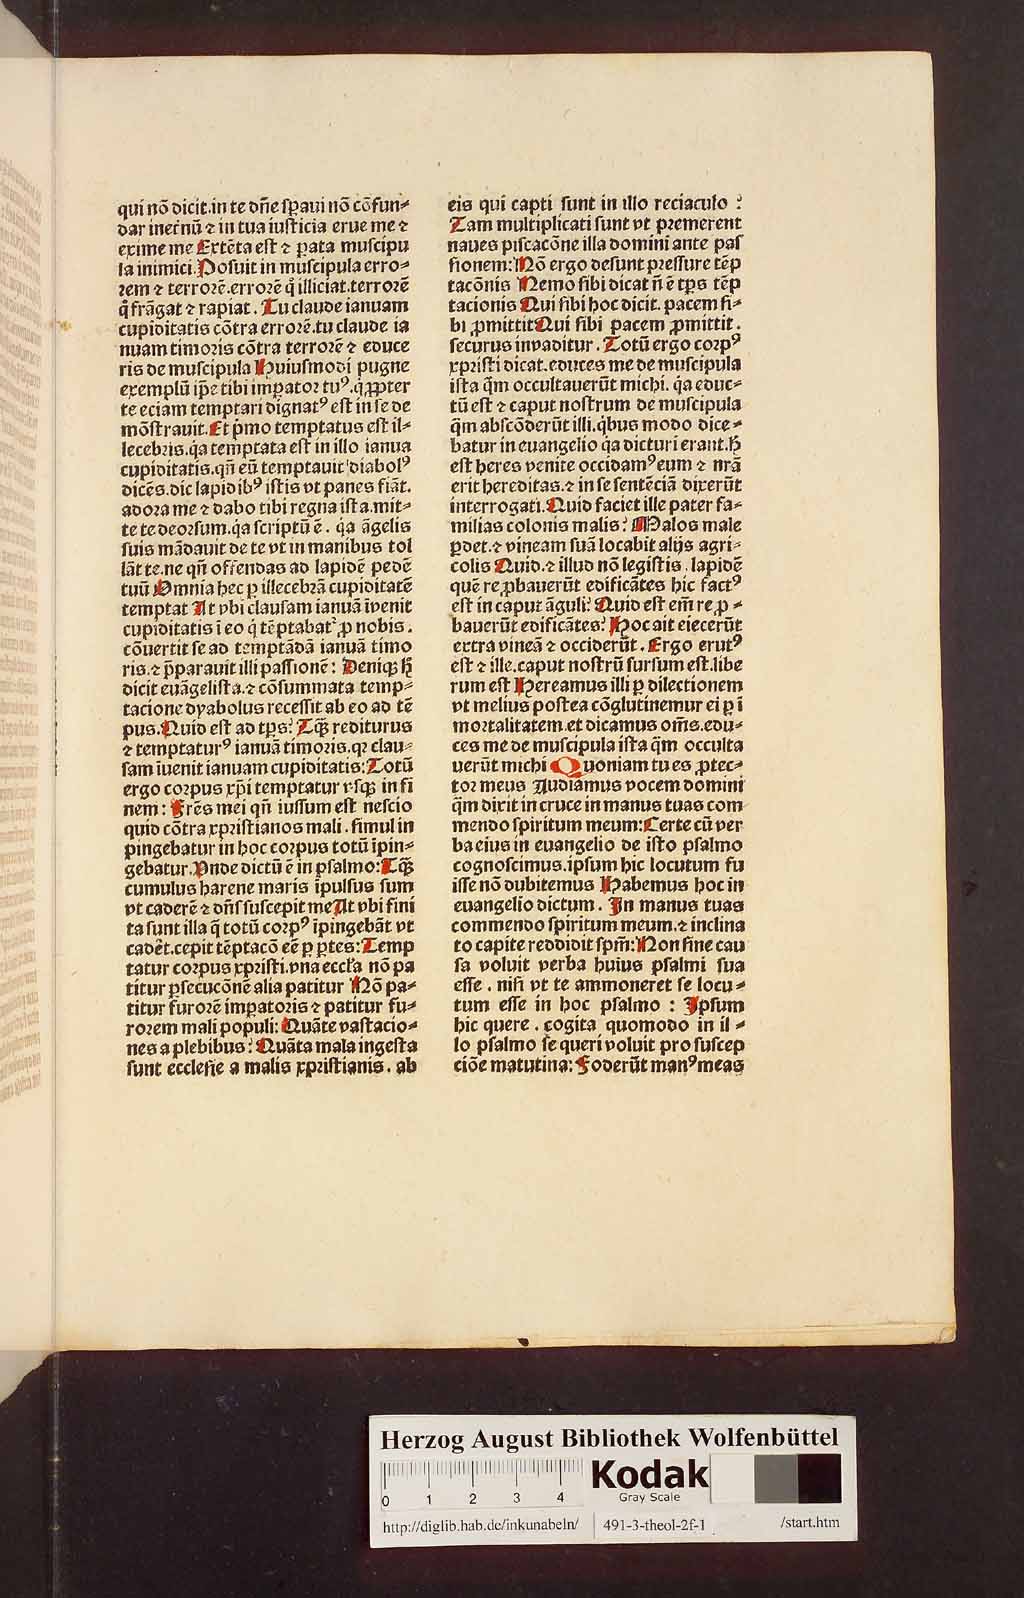 qui nō dicit.in te dn̄e sꝑaui nō cōfun⸗
dar inet̄nū ⁊ in tua iusticia erue me ⁊
exime me Extēta est ⁊ ꝑata muscipu
la inimici.Posuit in muscipula erro⸗
rem ⁊ terrorē.errorē q̄ illiciat.terrorē
q̄ frāgat ⁊ rapiat. Tu claude ianuam
cupiditatis cōtra errorē.tu claude ia
nuam timoris cōtra terrorē ⁊ educe
ris de muscipula Huiusmodi pugne
exemplū ip̄e tibi imꝑator tuꝰ.q̄ ꝓpter
te eciam temptari dignatꝰ est in se de
mōstrauit.Et pͥmo temptatus est il⸗
lecebris.q̇a temptata est in illo ianua
cupiditatis.qn̄ eū temptauit diabolꝰ
dicēs.dic lapidibꝰ istis vt panes fiāt.
adora me ⁊ dabo tibi regna ista.mit⸗
te te deorsum.q̇a scriptū ē. q̇a āgelis
suis mādauit de te vt in manibus tol
lāt te.ne qn̄ offendas ad lapidē pedē
tuū Omnia hec ꝑ illecebrā cupiditatē
temptat At vbi clausam ianuā īvenit
cupiditatis ī eo q̄ tēptabat᷑ ꝓ nobis.
cōuertit se ad temptādā ianuā timo
ris.⁊ p̄parauit illi passionē: Deniqꝫ ħ
dicit euāgelista.⁊ cōsummata temp⸗
tacione dyabolus recessit ab eo ad tē
pus.Quid est ad tp̄s? Tāqꝫ rediturus
⁊ temptaturꝰ ianuā timoris.qꝛ clau⸗
sam īuenit ianuam cupiditatis:Totū
ergo corpus xp̄i temptatur vsqꝫ in fi
nem: Frēs mei qn̄ iussum est nescio
quid cōtra xpristianos mali.simul in
pingebatur in hoc corpus totū īpin⸗
gebatur.Vnde dictū ē in psalmo:Tāqꝫ
cumulus harene maris īpulsus sum
vt caderē ⁊ dn̄s suscepit me At vbi fini
ta sunt illa q̄ totū corpꝰ īpingebāt vt
cadēt.cepit tēptacō eē ꝑ ꝑtes:Temp
tatur corpus xpristi.vna eccl̄a nō pa
titur ꝑsecucōnē alia patitur Nō pa⸗
titur furorē imꝑatoris ⁊ patitur fu⸗
rorem mali populi: Quāte vastacio⸗
nes a plebibus? Quāta mala ingesta
sunt ecclesie a malis xpristianis. ab
eis qui capti sunt in illo reciaculo ?
Tam multiplicati sunt vt premerent
naues piscacōne illa domini ante pas
sionem:Nō ergo desunt pressure tēp
tacōnis Nemo sibi dicat n̄ ē tp̄s tēp
tacionis Qui sibi hoc dicit. pacem si⸗
bi ꝓmittit Qui sibi pacem ꝓmittit.
securus invaditur. Totū ergo corpꝰ
xpristi dicat.educes me de muscipula
ista q̄m occultauerūt michi. q̇a educ⸗
tū est ⁊ caput nostrum de muscipula
q̄m abscōderūt illi.qͥbus modo dice⸗
batur in euangelio q̇a dicturi erant.ħ
est heres venite occidamꝰ eum ⁊ nr̄ā
erit hereditas.⁊ in se sentēciā dixerūt
interrogati.Quid faciet ille pater fa⸗
milias colonis malis? Malos male
ꝑdet.⁊ vineam suā locabit alijs agri⸗
colis Quid.⁊ illud nō legistis.lapidē
quē reꝓbauerūt edificātes hic factꝰ
est in caput āguli? Quid est em̄ re ꝓ⸗
bauerūt edificātes? Hoc ait eiecerūt
extra vineā ⁊ occiderūt. Ergo erutꝰ
est ⁊ ille.caput nostrū sursum est.libe
rum est Hereamus illi ꝑ dilectionem
vt melius postea cōglutinemur ei ꝑ i
mortalitatem.et dicamus om̄s.edu⸗
ces me de muscipula ista q̄m occulta
uerūt michi Quoniam tu es ꝓtec⸗
tor meus Audiamus vocem domini
q̄m dixit in cruce in manus tuas com
mendo spiritum meum:Certe cū ver
ba eius in euangelio de isto psalmo
cognoscimus.ipsum hic locutum fu
isse nō dubitemus Habemus hoc in
euangelio dictum. In manus tuas
commendo spiritum meum.⁊ inclina
to capite reddidit sp̄m:Non sine cau
sa voluit verba huius psalmi sua
esse. nisi vt te ammoneret se locu⸗
tum esse in hoc psalmo : Ipsum
hic quere. cogita quomodo in il⸗
lo psalmo se queri voluit pro suscep
ciōe matutina:Foderūt manꝰ meas
Herzog August Bibliothek Wolfenbüttel
0 1 2 3 4
Kodak
Gray Scale
http://diglib.hab.de/inkunabeln/ 491-3-theol-2f-1 /start.htm